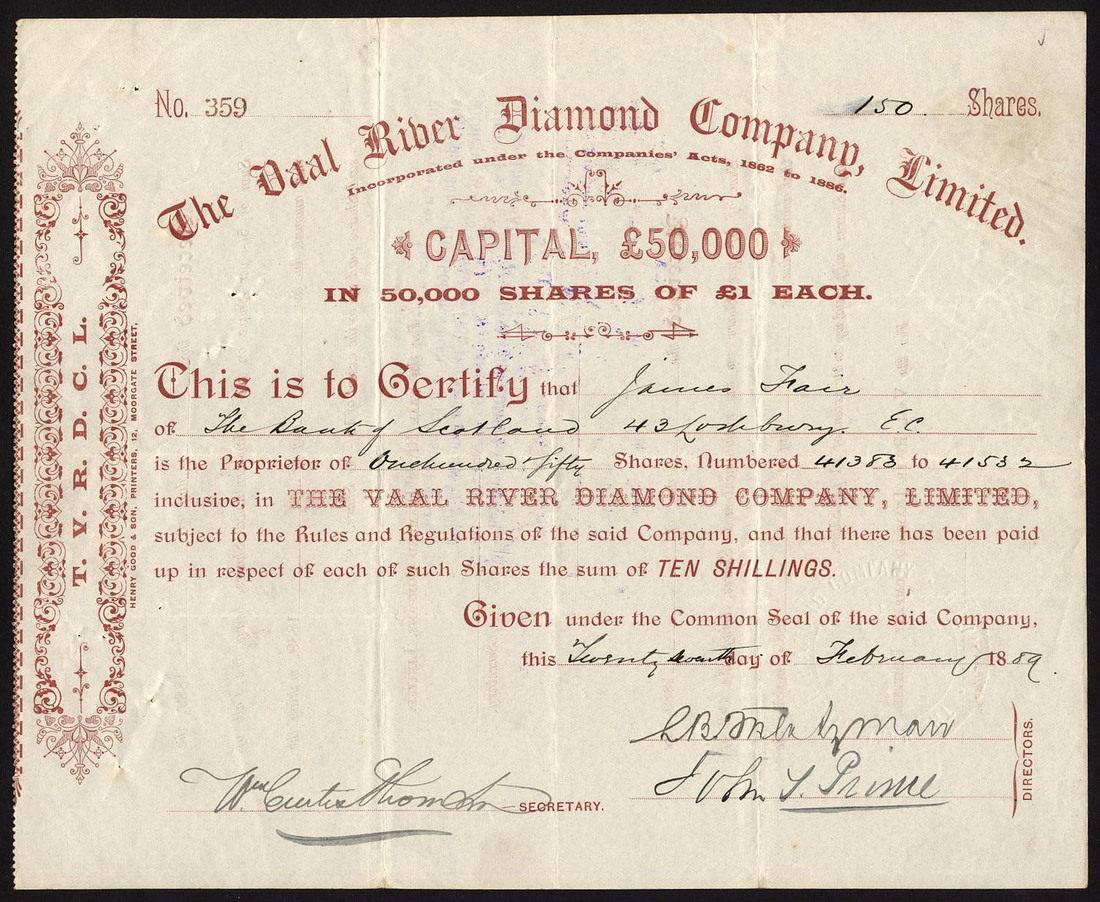 No. 359
150 Shares.
The Vaal River Diamond Company, Limited.
Incorporated under the Companies' Acts, 1862 to 1886.
CAPITAL, £50,000
IN 50,000 SHARES OF £1 EACH.
This is to Certify that James Fair
of The Bank of Scotland 43 Lothbury. E.C.
is the Proprietor of One hundred & fifty Shares, Numbered 41383 to 41532
inclusive, in THE VAAL RIVER DIAMOND COMPANY, LIMITED,
subject to the Rules and Regulations of the said Company, and that there has been paid
up in respect of each of such Shares the sum of TEN SHILLINGS.
Given under the Common Seal of the said Company,
this Twenty seventh day of February 1889.
John S. Prince
DIRECTORS.
Wm Curtis Thomson SECRETARY.
T. V. R. D. C. L.
HENRY GOOD & SON, PRINTERS, 12, MOORGATE STREET.